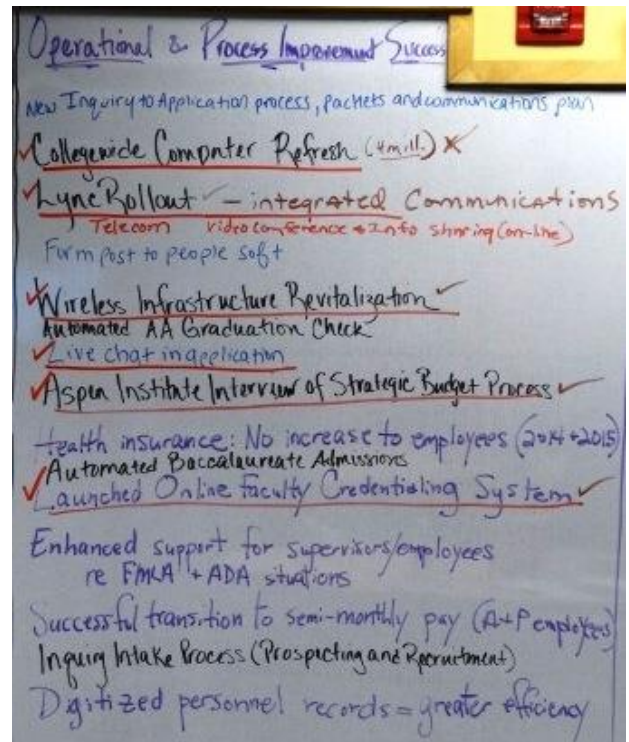 Operational & Process Improvement Success
New Inquiry to Application process, packets and communications plan
Collegewide Computer Refresh (4mill.)
Lync Rollout - integrated Communications
Telecom videoconference + Info sharing (on-line)
Furm post to people soft
Wireless Infrastructure Revitalization
Automated AA Graduation Check
Live chat in application
Aspen Institute Interview of Strategic Budget Process
Health insurance: No increase to employees (2014+2015)
Automated Baccalaureate Admissions
Launched Online Faculty Credentialing System
Enhanced support for supervisors/employees
re FMLA + ADA situations
Successful transition to semi-monthly pay (A+P employees)
Inquiry Intake Process (Prospecting and Recruitment)
Digitized personnel records = greater efficiency